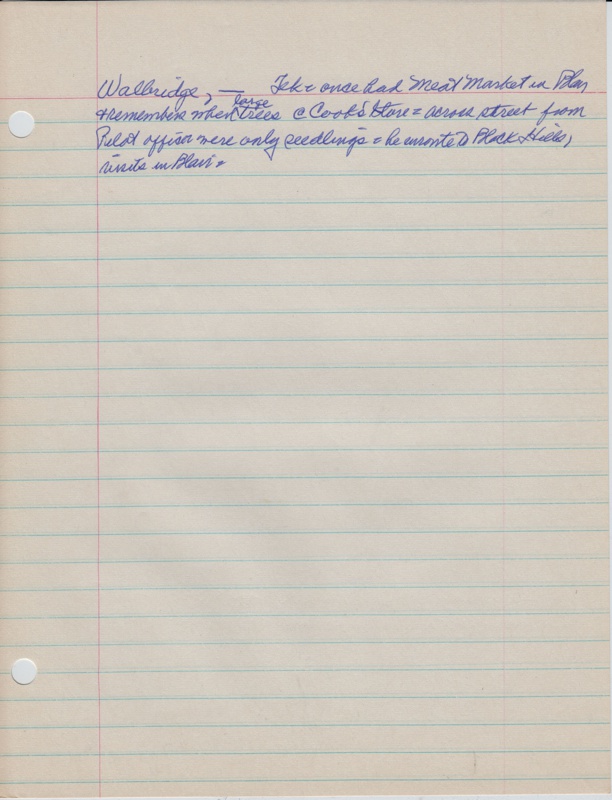 Walbridge, — Tek = once had Meat Market in Blair
& remembers when large trees @ Cook's Store = across street from
Pilot office were only seedlings = he enroute to Black Hills,
visits in Blair =